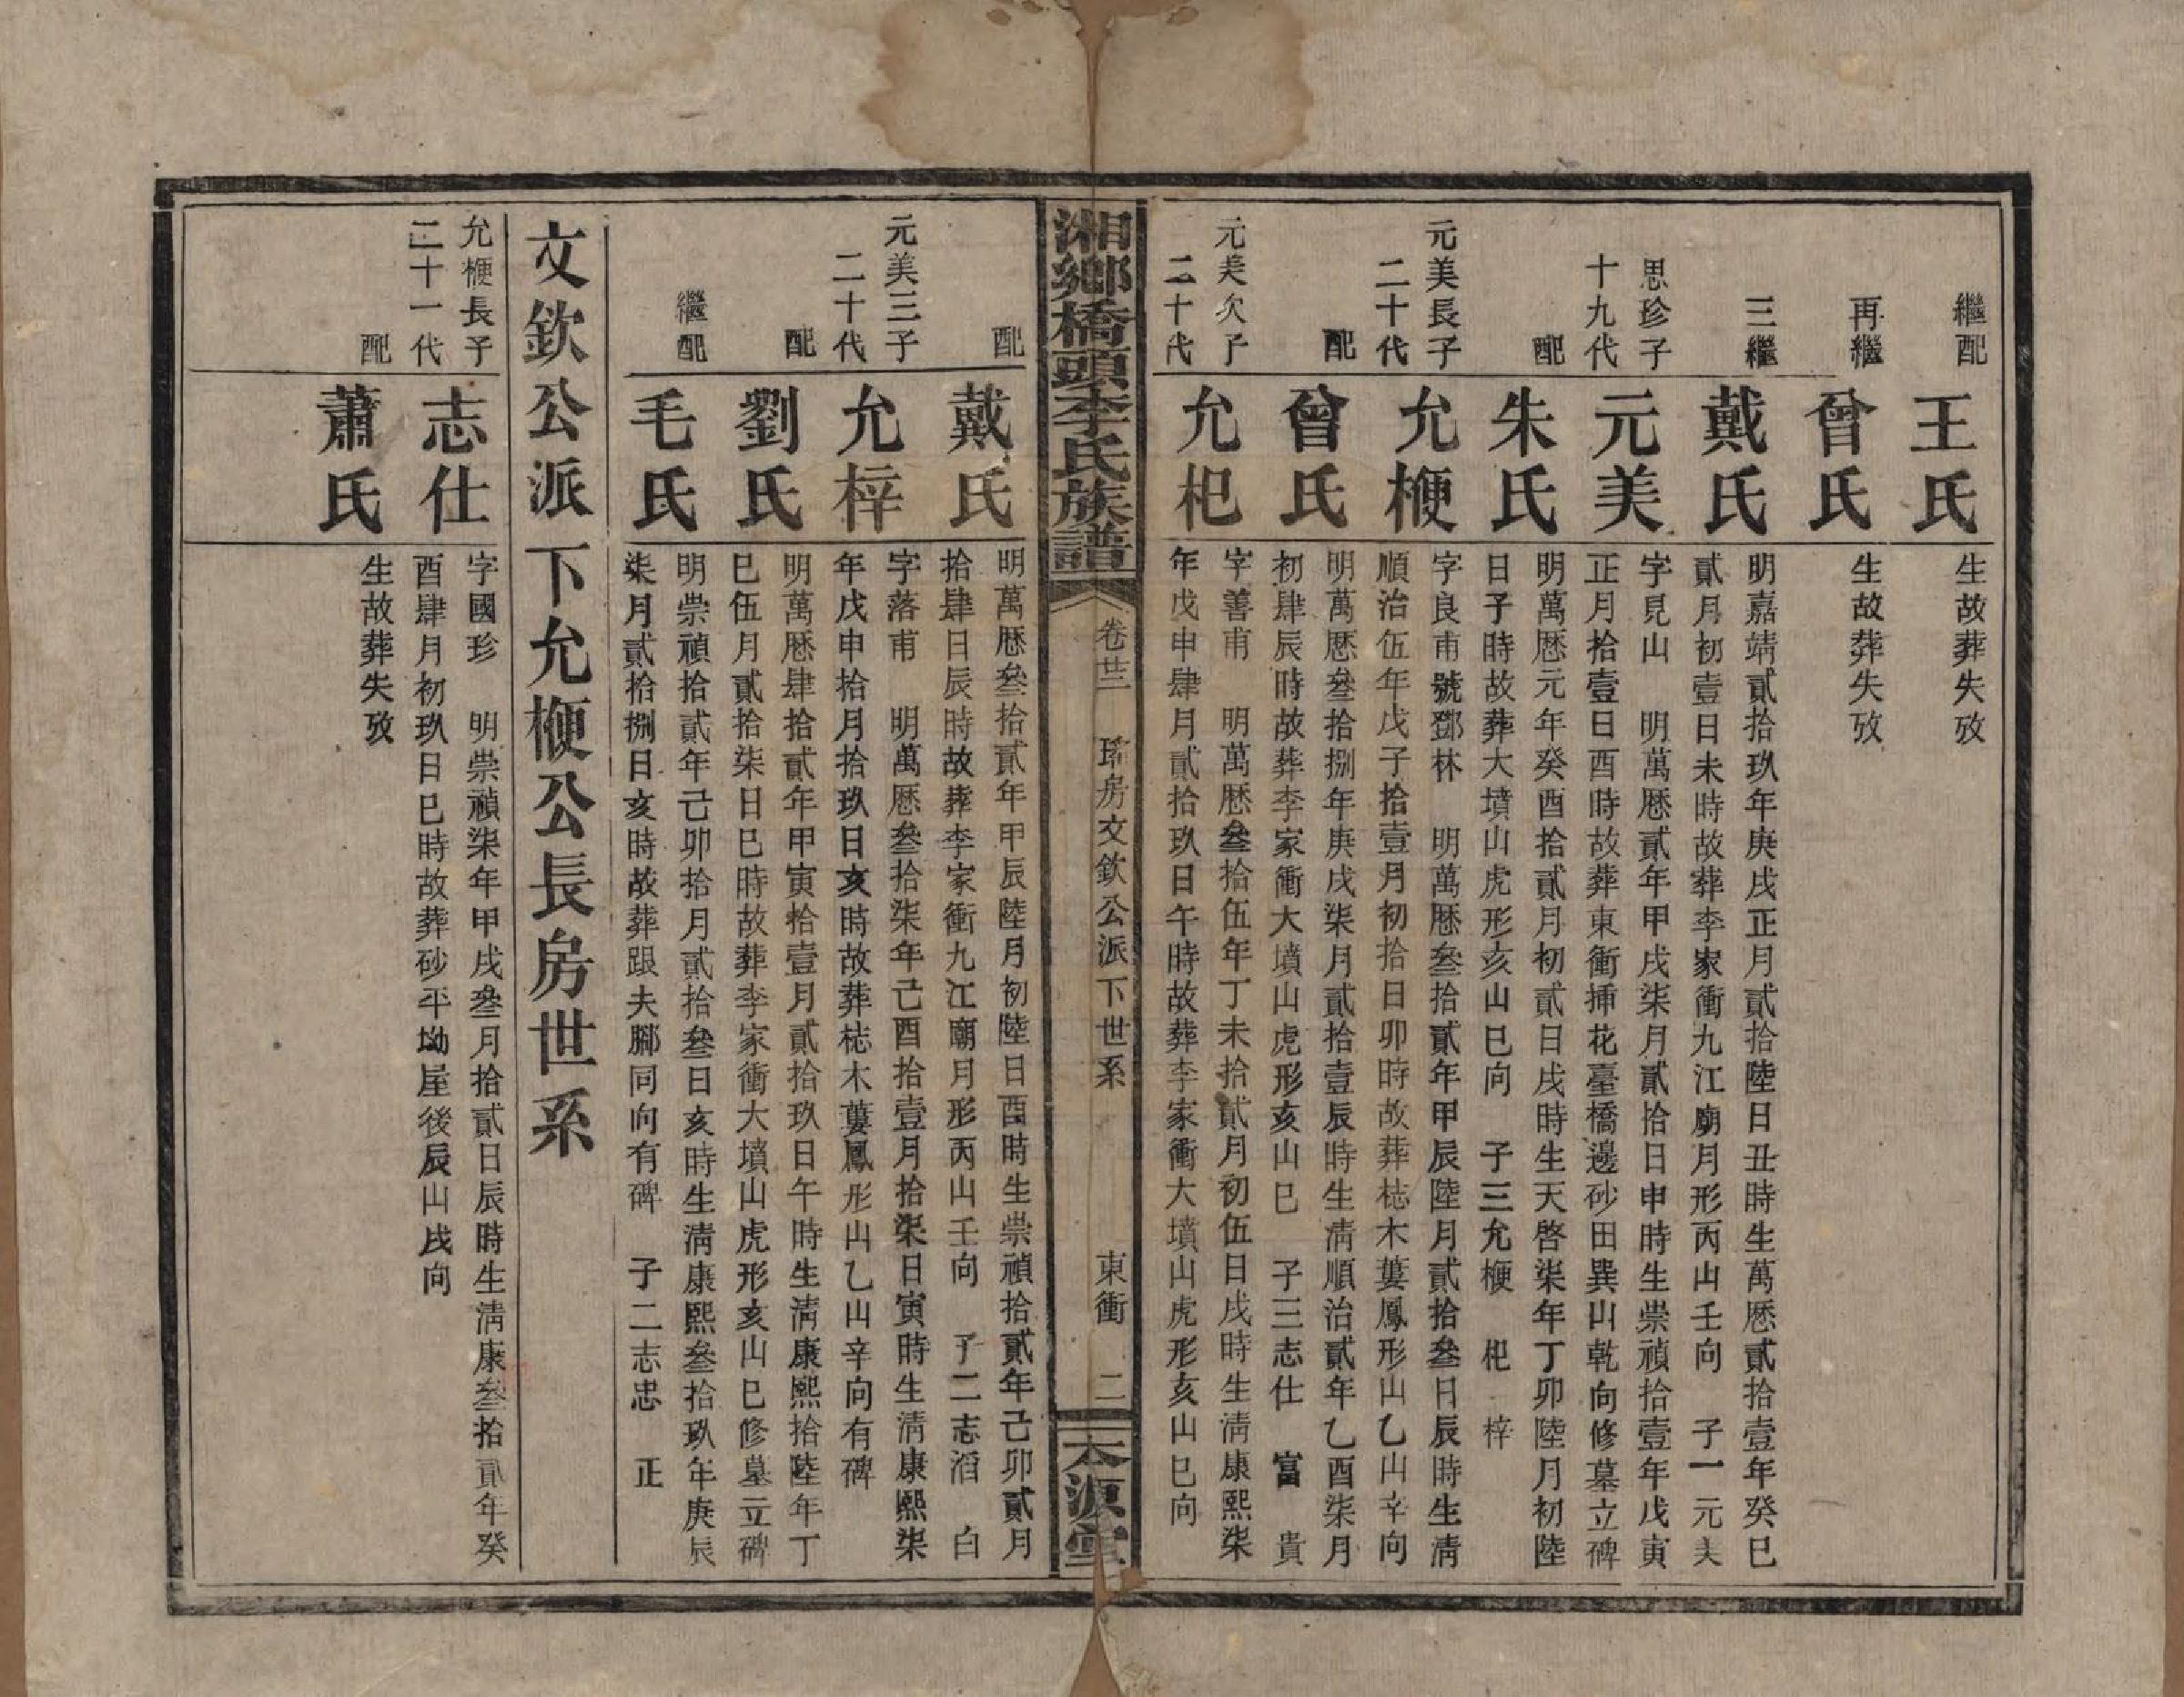 繼配
王氏
生故葬失攷
再繼
曾氏
生故葬失攷
三繼
戴氏
明嘉靖貳拾玖年庚戌正月貳拾陸日丑時生萬厯貳拾壹年癸巳
貳月初壹日未時故葬李家衝九江廟月形丙山壬向 子一元美
思珍子
十九代
元美
字見山 明萬厯貳年甲戌柒月貳拾日申時生崇禎拾壹年戊寅
正月拾壹日酉時故葬東衝揷花臺橋邊砂田巽山乾向修墓立碑
配
朱氏
明萬厯元年癸酉拾貳月初貳日戌時生天啓柒年丁卯陸月初陸
日子時故葬大墳山虎形亥山巳向 子三允楩 杞 梓
元美長子
二十代
允楩
字良甫號鄧林 明萬厯叄拾貳年甲辰陸月貳拾叄日辰時生清
順治伍年戊子拾壹月初拾日卯時故葬梽木蔞鳳形山乙山辛向
配
曾氏
明萬厯叄拾捌年庚戌柒月貳拾壹辰時生清順治貳年乙酉柒月
初肆辰時故葬李家衝大墳山虎形亥山巳 子三志仕 富 貴
元美次子
二十代
允杞
字善甫 明萬厯叄拾伍年丁未拾貳月初伍日戌時生清康熙柒
年戊申肆月貳拾玖日午時故葬李家衝大墳山虎形亥山巳向
湘鄉橋頭李氏族譜
卷廿三 珤房文欽公派下世系 東衝 二
本源堂
配
戴氏
明萬厯叄拾貳年甲辰陸月初陸日酉時生崇禎拾貳年己卯貳月
拾肆日辰時故葬李家衝九江廟月形丙山壬向 子二志滔 白
元美三子
二十代
允梓
字落甫 明萬厯叄拾柒年己酉拾壹月拾柒日寅時生清康熙柒
年戊申拾月拾玖日亥時故葬梽木蔞鳳形山乙山辛向有碑
配
劉氏
明萬厯肆拾貳年甲寅拾壹月貳拾玖日午時生清康熙拾陸年丁
巳伍月貳拾柒日巳時故葬李家衝大墳山虎形亥山巳修墓立碑
繼配
毛氏
明崇禎拾貳年己卯拾月貳拾叄日亥時生清康熙叄拾玖年庚辰
柒月貳拾捌日亥時故葬跟夫腳同向有碑 子二志忠 正
文欽公派下允楩公長房世系
允楩長子
二十一代
志仕
字國珍 明崇禎柒年甲戌叄月拾貳日辰時生清康叄拾貳年癸
酉肆月初玖日巳時故葬砂平坳屋後辰山戌向
配
蕭氏
生故葬失攷